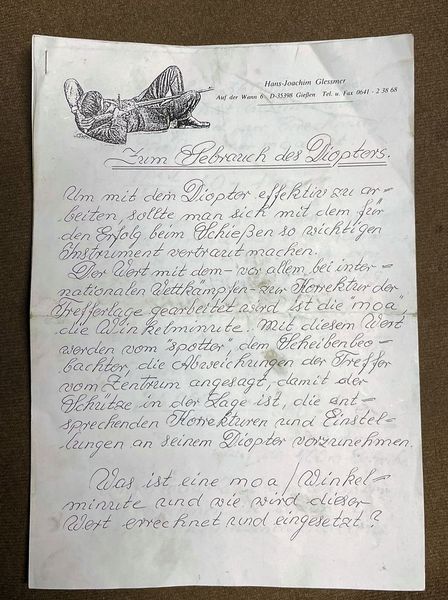 Hans-Joachim Glessmer
Auf der Wann 6 D-35398 Gießen Tel. u. Fax 0641 - 2 38 68
Zum Gebrauch des Diopters.
Um mit dem Diopter effektiv zu ar-
beiten, sollte man sich mit dem für
den Erfolg beim Schießen so wichtigen
Instrument vertraut machen.
Der Wert mit dem - vor allem bei inter-
nationalen Wettkämpfen - zur Korrektur der
Trefferlage gearbeitet wird ist die "moa",
die Winkelminute. Mit diesem Wert
werden vom "spotter", dem Scheibenbeo-
bachter, die Abweichungen der Treffer
vom Zentrum angesagt, damit der
Schütze in der Lage ist, die ent-
sprechenden Korrekturen und Einstel-
lungen an seinem Diopter vorzunehmen.
Was ist eine moa / Winkel-
minute und wie wird dieser
Wert errechnet und eingesetzt?